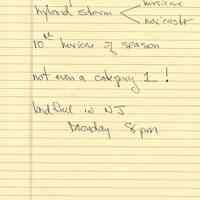 hurricane
hybrid storm
nor'easter
10th hurricane of season
not even a category 1!
landfall in NJ
Monday 8 pm